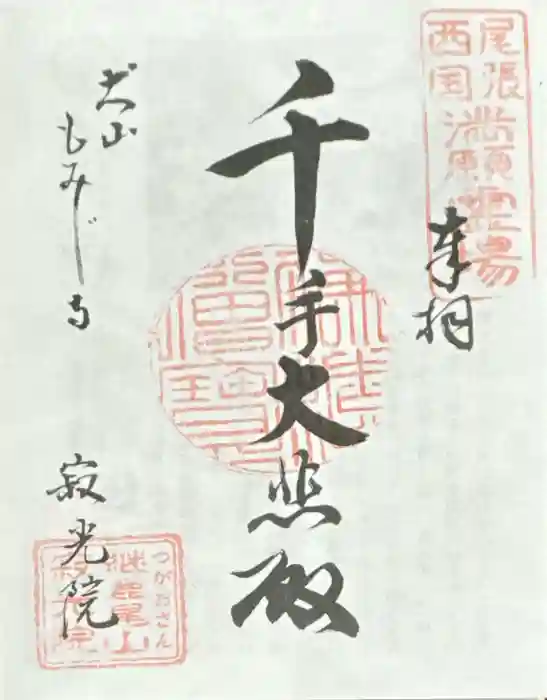 尾張
西国満願霊場
奉拝
千手大悲殿
犬山
もみじ寺
寂光院
つがおさん
継鹿尾山
寂光院